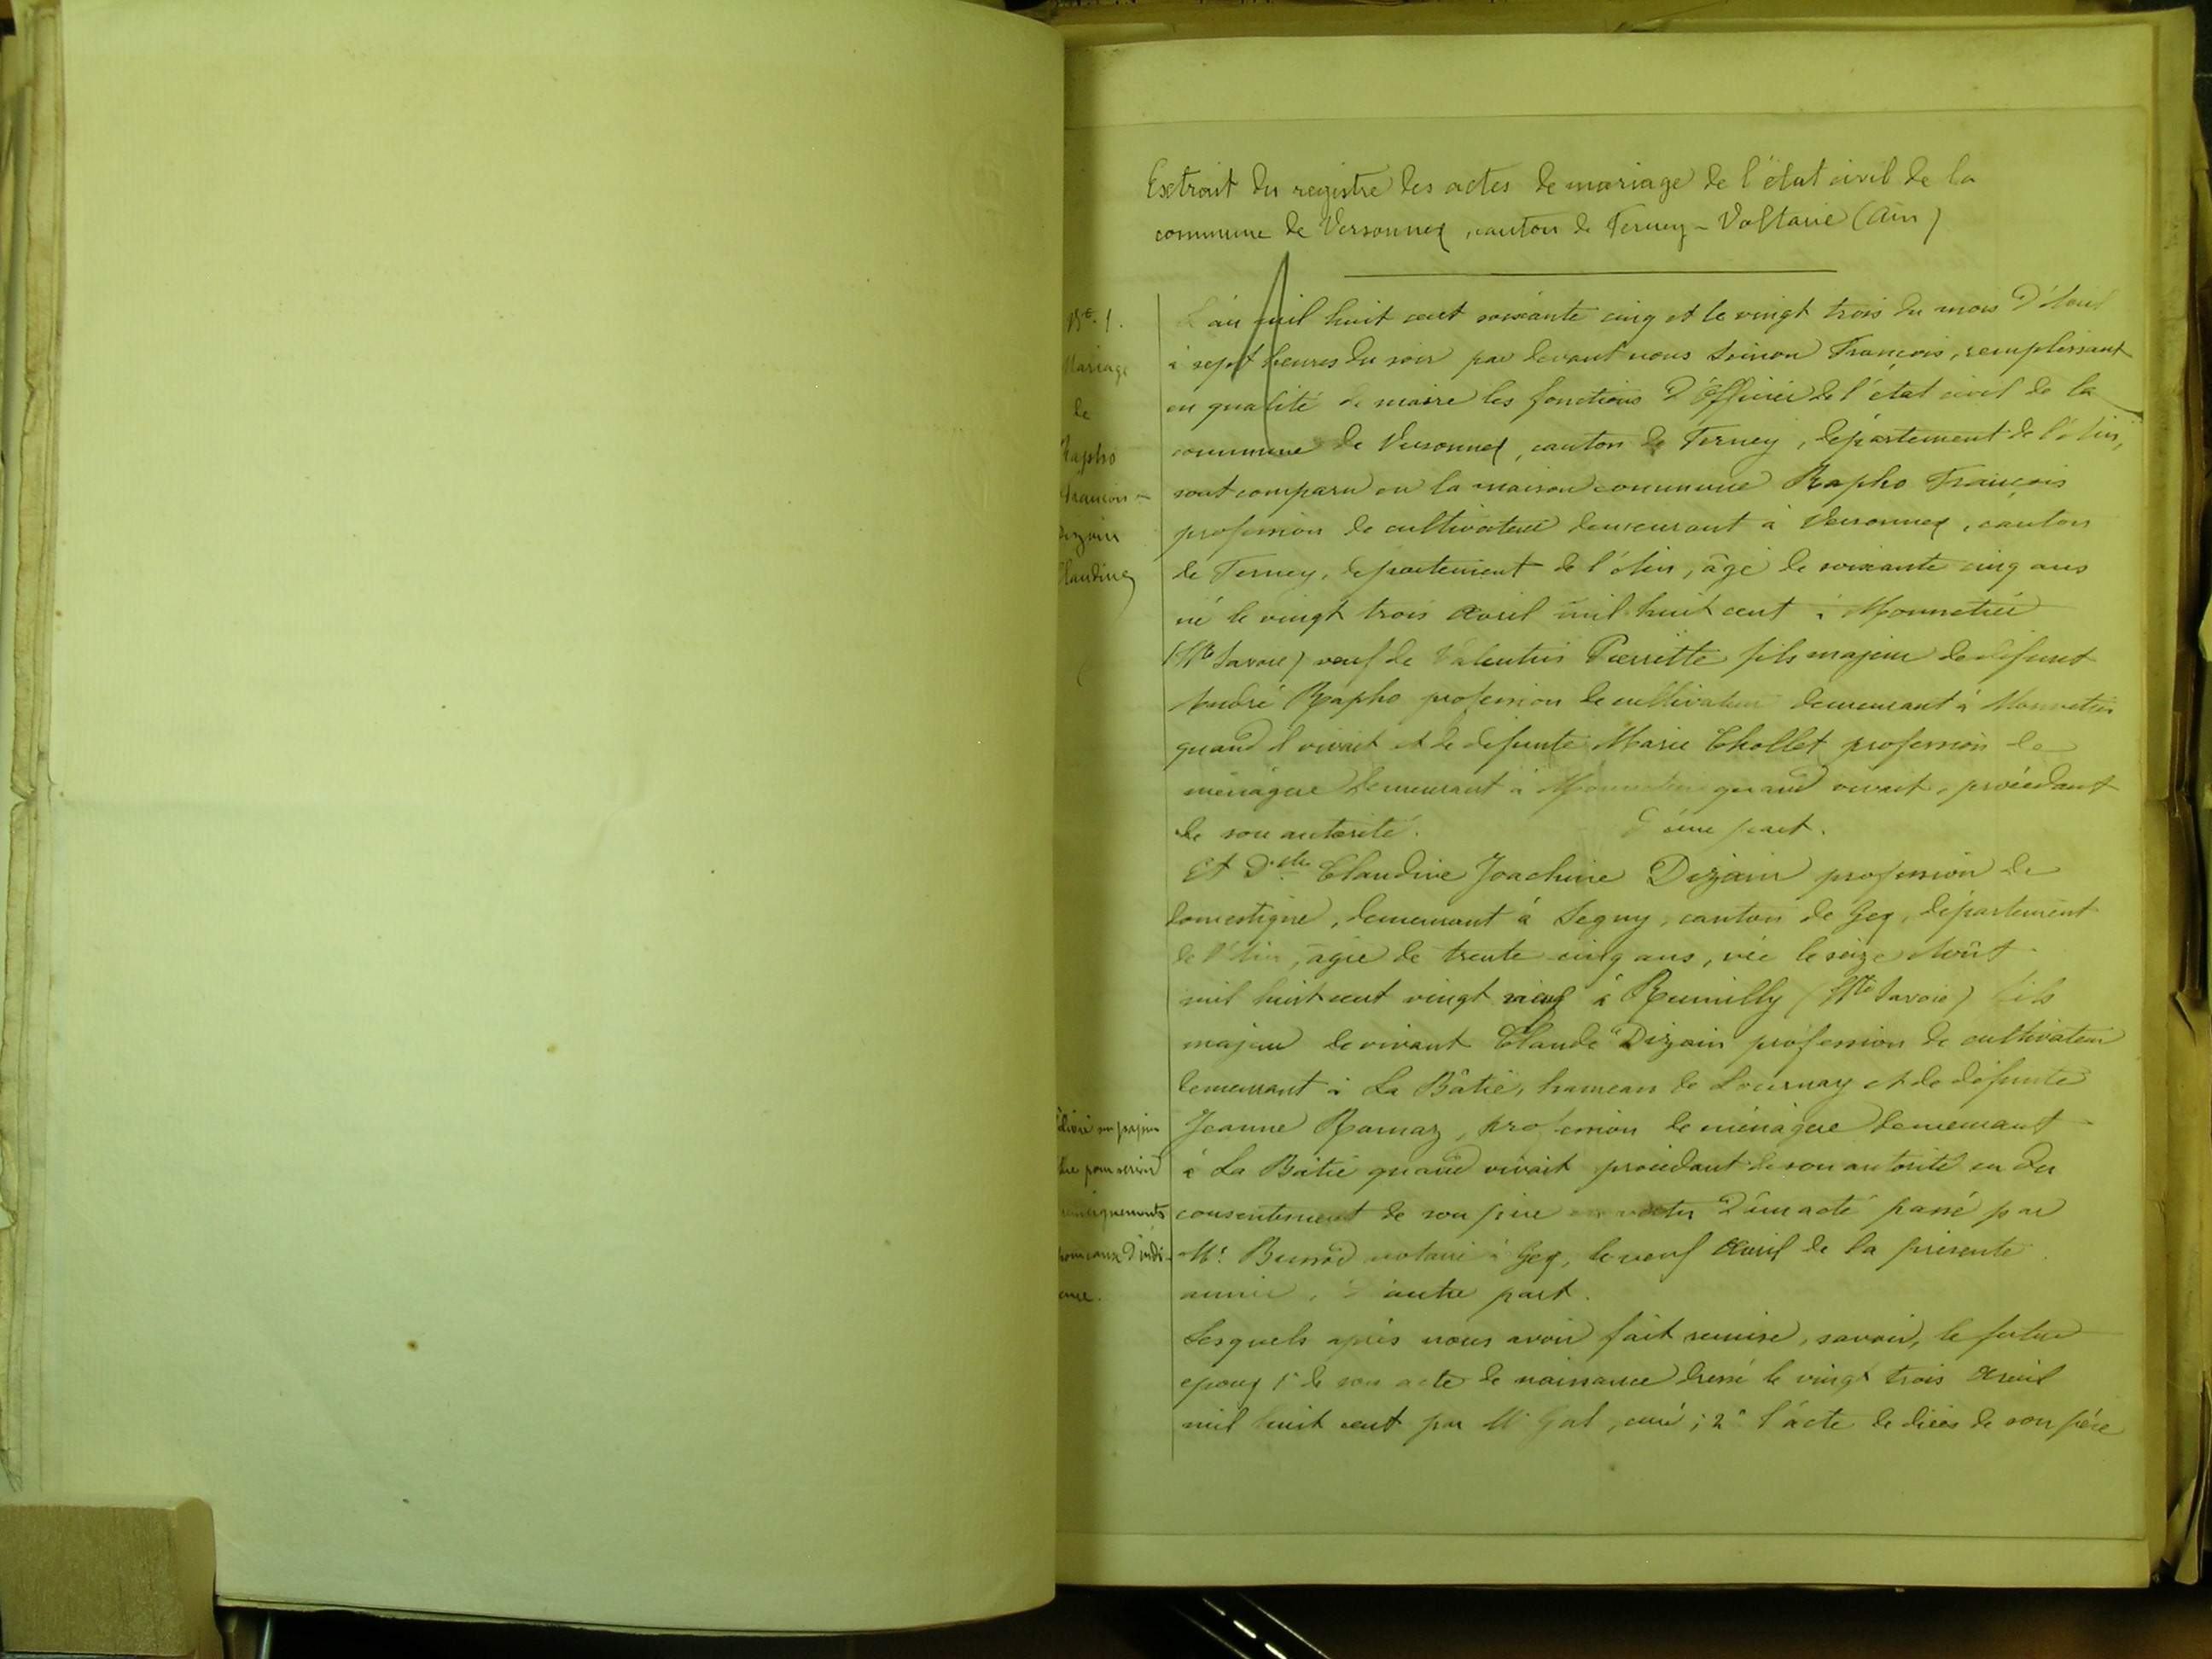 Extrait du registre des actes de mariage de l'état civil de la
commune de Versonnex, canton de Ferney-Voltaire (Ain)
Nº 1.
Mariage
de
Rapho
François
Dizain
Claudine
L'an mil huit cent soixante cinq et le vingt trois du mois d'Avril
à sept heures du soir par devant nous François, remplissant
en qualité de maire les fonctions d'Officier de l'état civil de la
commune de Versonnex, canton de Ferney, département de l'Ain,
sont comparu en la maison commune Rapho François
profession de cultivateur demeurant à Versonnex, canton
de Ferney, département de l'Ain, âgé de soixante cinq ans
né le vingt trois Avril mil huit cent à Monnetier
(Hte Savoie) veuf de Valentin Pierrette fils majeur de défunt
André Rapho profession de cultivateur demeurant à Monnetier
quand il vivait et de défunte Marie Chollet profession de
ménagère demeurant à Monnetier quand vivait, procédant
de son autorité. d'une part.
Et Dlle Claudine Joachine Dizain profession de
domestique, demeurant à Segny, canton de Gex, département
de l'Ain, âgée de trente cinq ans, née le seize Août
mil huit cent vingt à Rumilly (Hte Savoie) fils
majeur de vivant Claude Dizain profession de cultivateur
demeurant à La Bâtie, hameau de et de défunte
Jeanne Ramaz, profession de ménagère demeurant
à La Bâtie quand vivait procédant de son autorité en du
consentement de son père en vertu d'un acte passé par
Mr. notaire à Gex, le neuf Avril de la présente
année, d'autre part.
Lesquels après nous avoir fait remise, savoir, le futur
epoux 1º de son acte de naissance dressé le vingt trois Avril
mil huit cent par Mr , curé; 2º l'acte de décès de son père
pour servir
renseignements
pour cause d'indi-